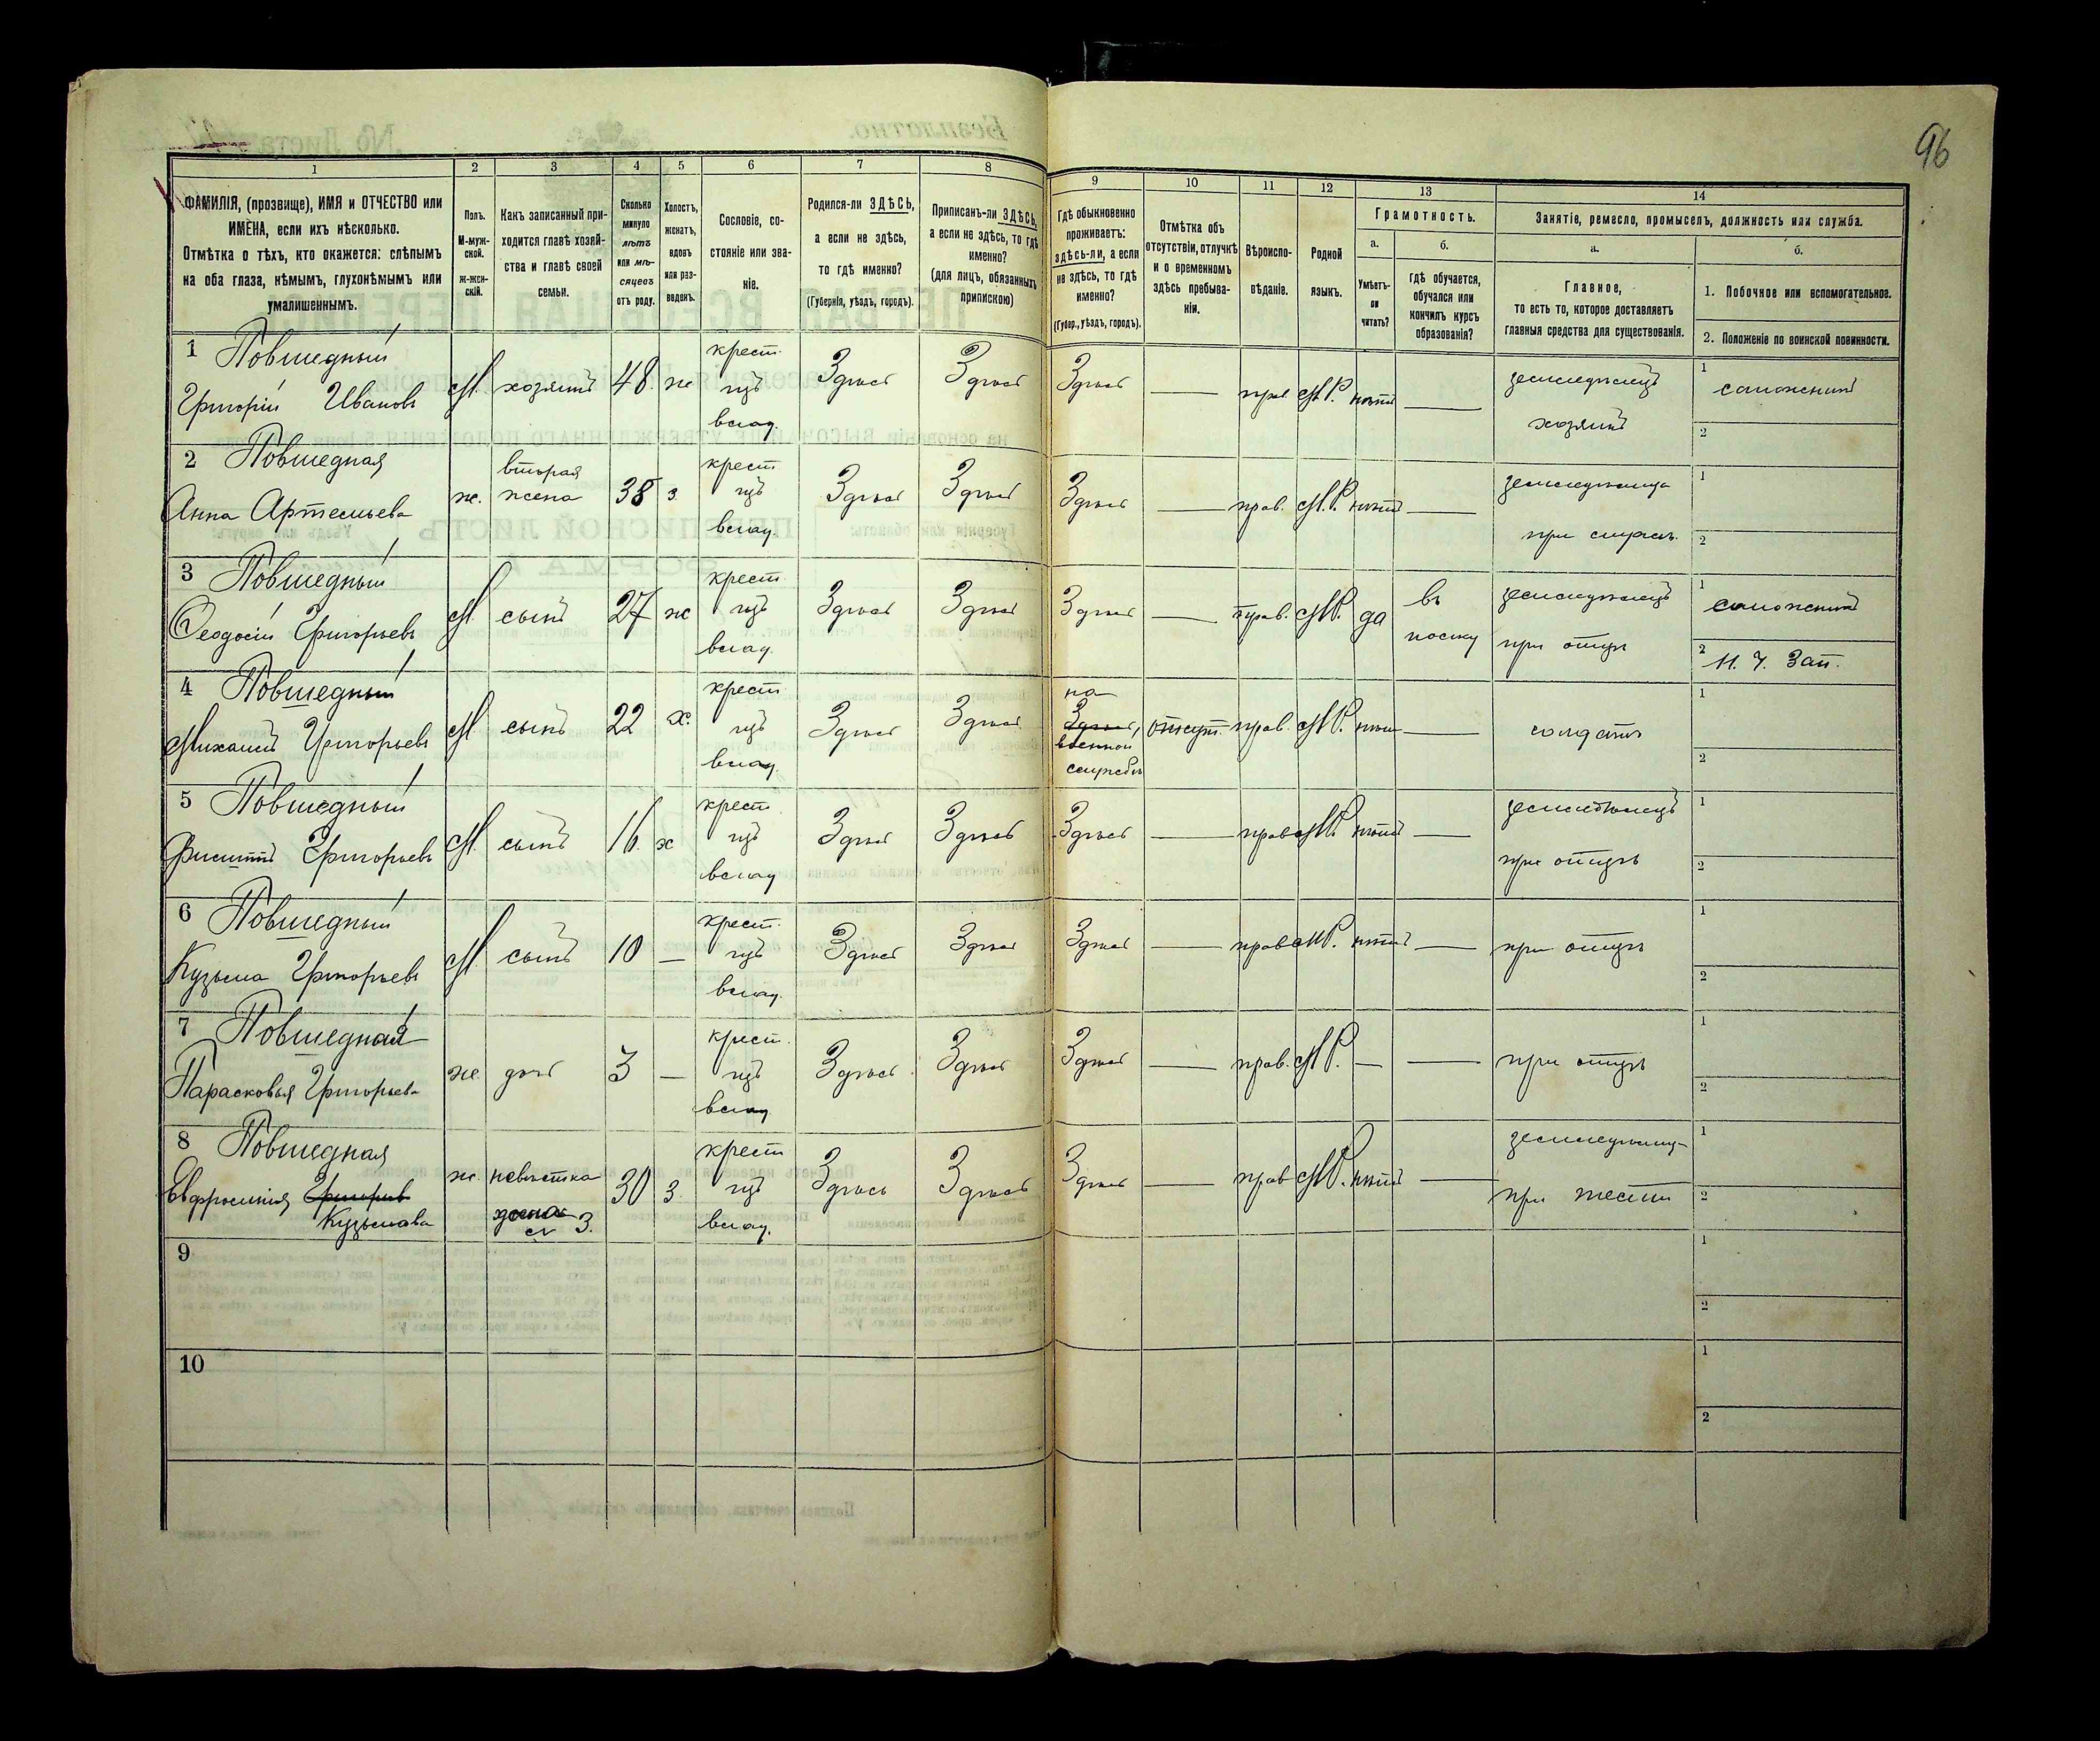 96
1 2 3 4 5 6 7 8 9 10 11 12 13 14
ФАМИЛІЯ, (прозвище), ИМЯ и ОТЧЕСТВО или
ИМЕНА, если ихъ нѣсколько.
Отмѣтка о тѣхъ, кто окажется: слѣпымъ
на оба глаза, нѣмымъ, глухонѣмымъ или
умалишеннымъ.
Полъ.
М-муж-
ской.
ж-жен-
скій.
Какъ записанный при-
ходится главѣ хозяй-
ства и главѣ своей
семьи.
Сколько
минуло
лѣтъ
или мѣ-
сяцевъ
отъ роду.
Холостъ,
женатъ,
вдовъ
или раз-
веденъ.
Сословіе, со-
стояніе или зва-
ніе.
Родился-ли ЗДѢСЬ,
а если не здѣсь,
то гдѣ именно?
(Губернія, уѣздъ, городъ).
Приписанъ-ли ЗДѢСЬ,
а если не здѣсь, то гдѣ
именно?
(для лицъ, обязанныхъ
припискою)
Гдѣ обыкновенно
проживаетъ:
здѣсь-ли, а если
не здѣсь, то гдѣ
именно?
(Губер., уѣздъ, городъ).
Отмѣтка объ
отсутствіи, отлучкѣ
и о временномъ
здѣсь пребыва-
ніи.
Вѣроиспо-
вѣданіе.
Родной
языкъ.
Грамотность.
а.
Умѣетъ-
ли
читать?
б.
Гдѣ обучается,
обучался или
кончилъ курсъ
образованія?
Занятіе, ремесло, промыселъ, должность или служба.
а.
Главное,
то есть то, которое доставляетъ
главныя средства для существованія.
б.
1. Побочное или вспомогательное.
2. Положеніе по воинской повинности.
1 Повшедный
Григорій Ивановъ М. хозяинъ 48. ж крест. изъ влад. Здѣсь Здѣсь Здѣсь — прав М.Р. нѣтъ — земледѣлецъ хозяинъ 1 сапожникъ 2
2 Повшедная
Анна Артемьева ж. вторая жена 38 з. крест изъ влад. Здѣсь Здѣсь Здѣсь — прав. М.Р. нѣтъ — земледѣлица при 1 2
3 Повшедный
Ѳеодосій Григорьевъ М сынъ 27 ж крест. изъ влад. Здѣсь Здѣсь Здѣсь — прав. М.Р. да въ земледѣлецъ при отцѣ 1 сапожникъ 2 Зап.
4 Повшедный
Михаилъ Григорьевъ М сынъ 22 х. крест. изъ влад. Здѣсь Здѣсь на Здѣсь, военной службѣ отсут. прав. М.Р. нѣтъ — солдатъ 1 2
5 Повшедный
Филиппъ Григорьевъ М. сынъ 16. х крест изъ влад Здѣсь Здѣсь Здѣсь — прав М.Р. нѣтъ — земледѣлецъ при отцѣ 1 2
6 Повшедный
Кузьма Григорьевъ М. сынъ 10 — крест. изъ влад. Здѣсь Здѣсь Здѣсь — прав М.Р. нѣтъ — при отцѣ 1 2
7 Повшедная
Парасковья Григорьева ж. дочь 3 — крест. изъ влад Здѣсь Здѣсь Здѣсь — прав. М.Р. — — при отцѣ 1 2
8 Повшедная
Евфросинія Григорьев Кузьмова ж. невѣстка жена № 3. 30 з. крест изъ влад. Здѣсь Здѣсь Здѣсь — прав М.Р. нѣтъ — при тести 1 2
9 1 2
10 1 2